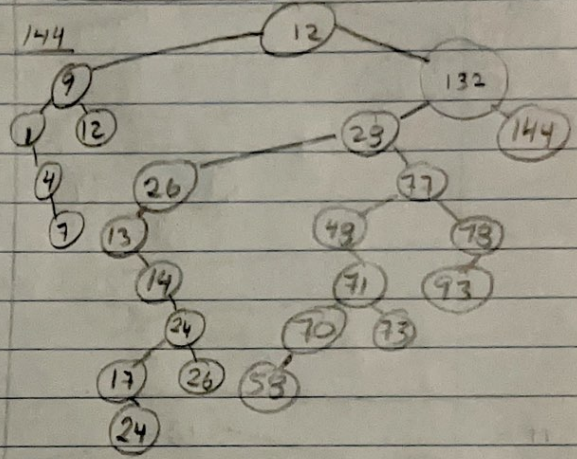 144
12
9
132
1
12
29
144
4
26
77
7
13
49
79
14
71
93
24
70
73
17
26
59
24